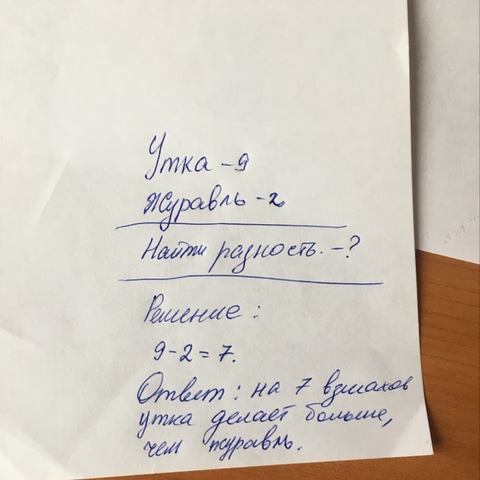 Утка - 9
Журавль - 2
Найти разность. - ?
Решение :
9 - 2 = 7.
Ответ : на 7 взмахов
утка делает больше,
чем журавль.